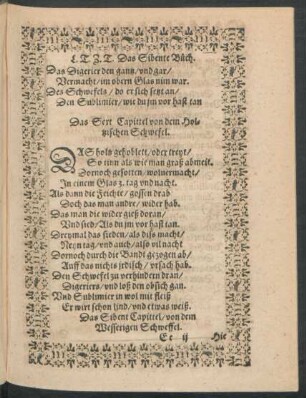 L. T. Z. T. Das Sibente Büch.
Das Digerier den gantz/ vnd gar/
Vermacht/ im obern Glas nim war.
Des Schwefels/ do er sich setzt an/
Den Sublimier/ wie du jn vor hast tan
Das Sext Capittel von dem Hol-
tzischen Schwefel.
DAs holtz gehoblett, oder treyt/
So tinn als wie man graß abmeit.
Dornoch gesotten, wol vermacht/
In einem Glas 3. tag vnd nacht.
Als dann die Feichte/ gossen drab
Doch das man andre/ wider hab.
Das man die wider gieß doran/
Vnd sied/ Als du jm vor hast tan.
Dreymal das sieden/ als diso macht/
Neyn tag/ vnd auch/ also vil nacht
Dornoch durch die Band gezogen ab/
Auff das nichts jrdisch/ vrsach hab.
Den Schwefel zu verhindern dran/
Digeriers/ vnd loß den obsich gan.
Vnd Sublimier in wol mit fleiß
Er wirt schon lind/ vnd etwas weiß.
Das Sibent Capittel/ von dem
Wesserigen Schweffel.
Ee ij Hie